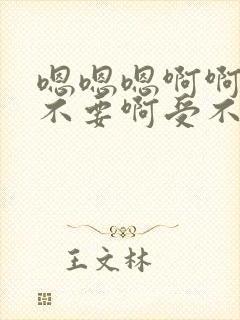 嗯嗯嗯啊啊
不要啊受不
王文林